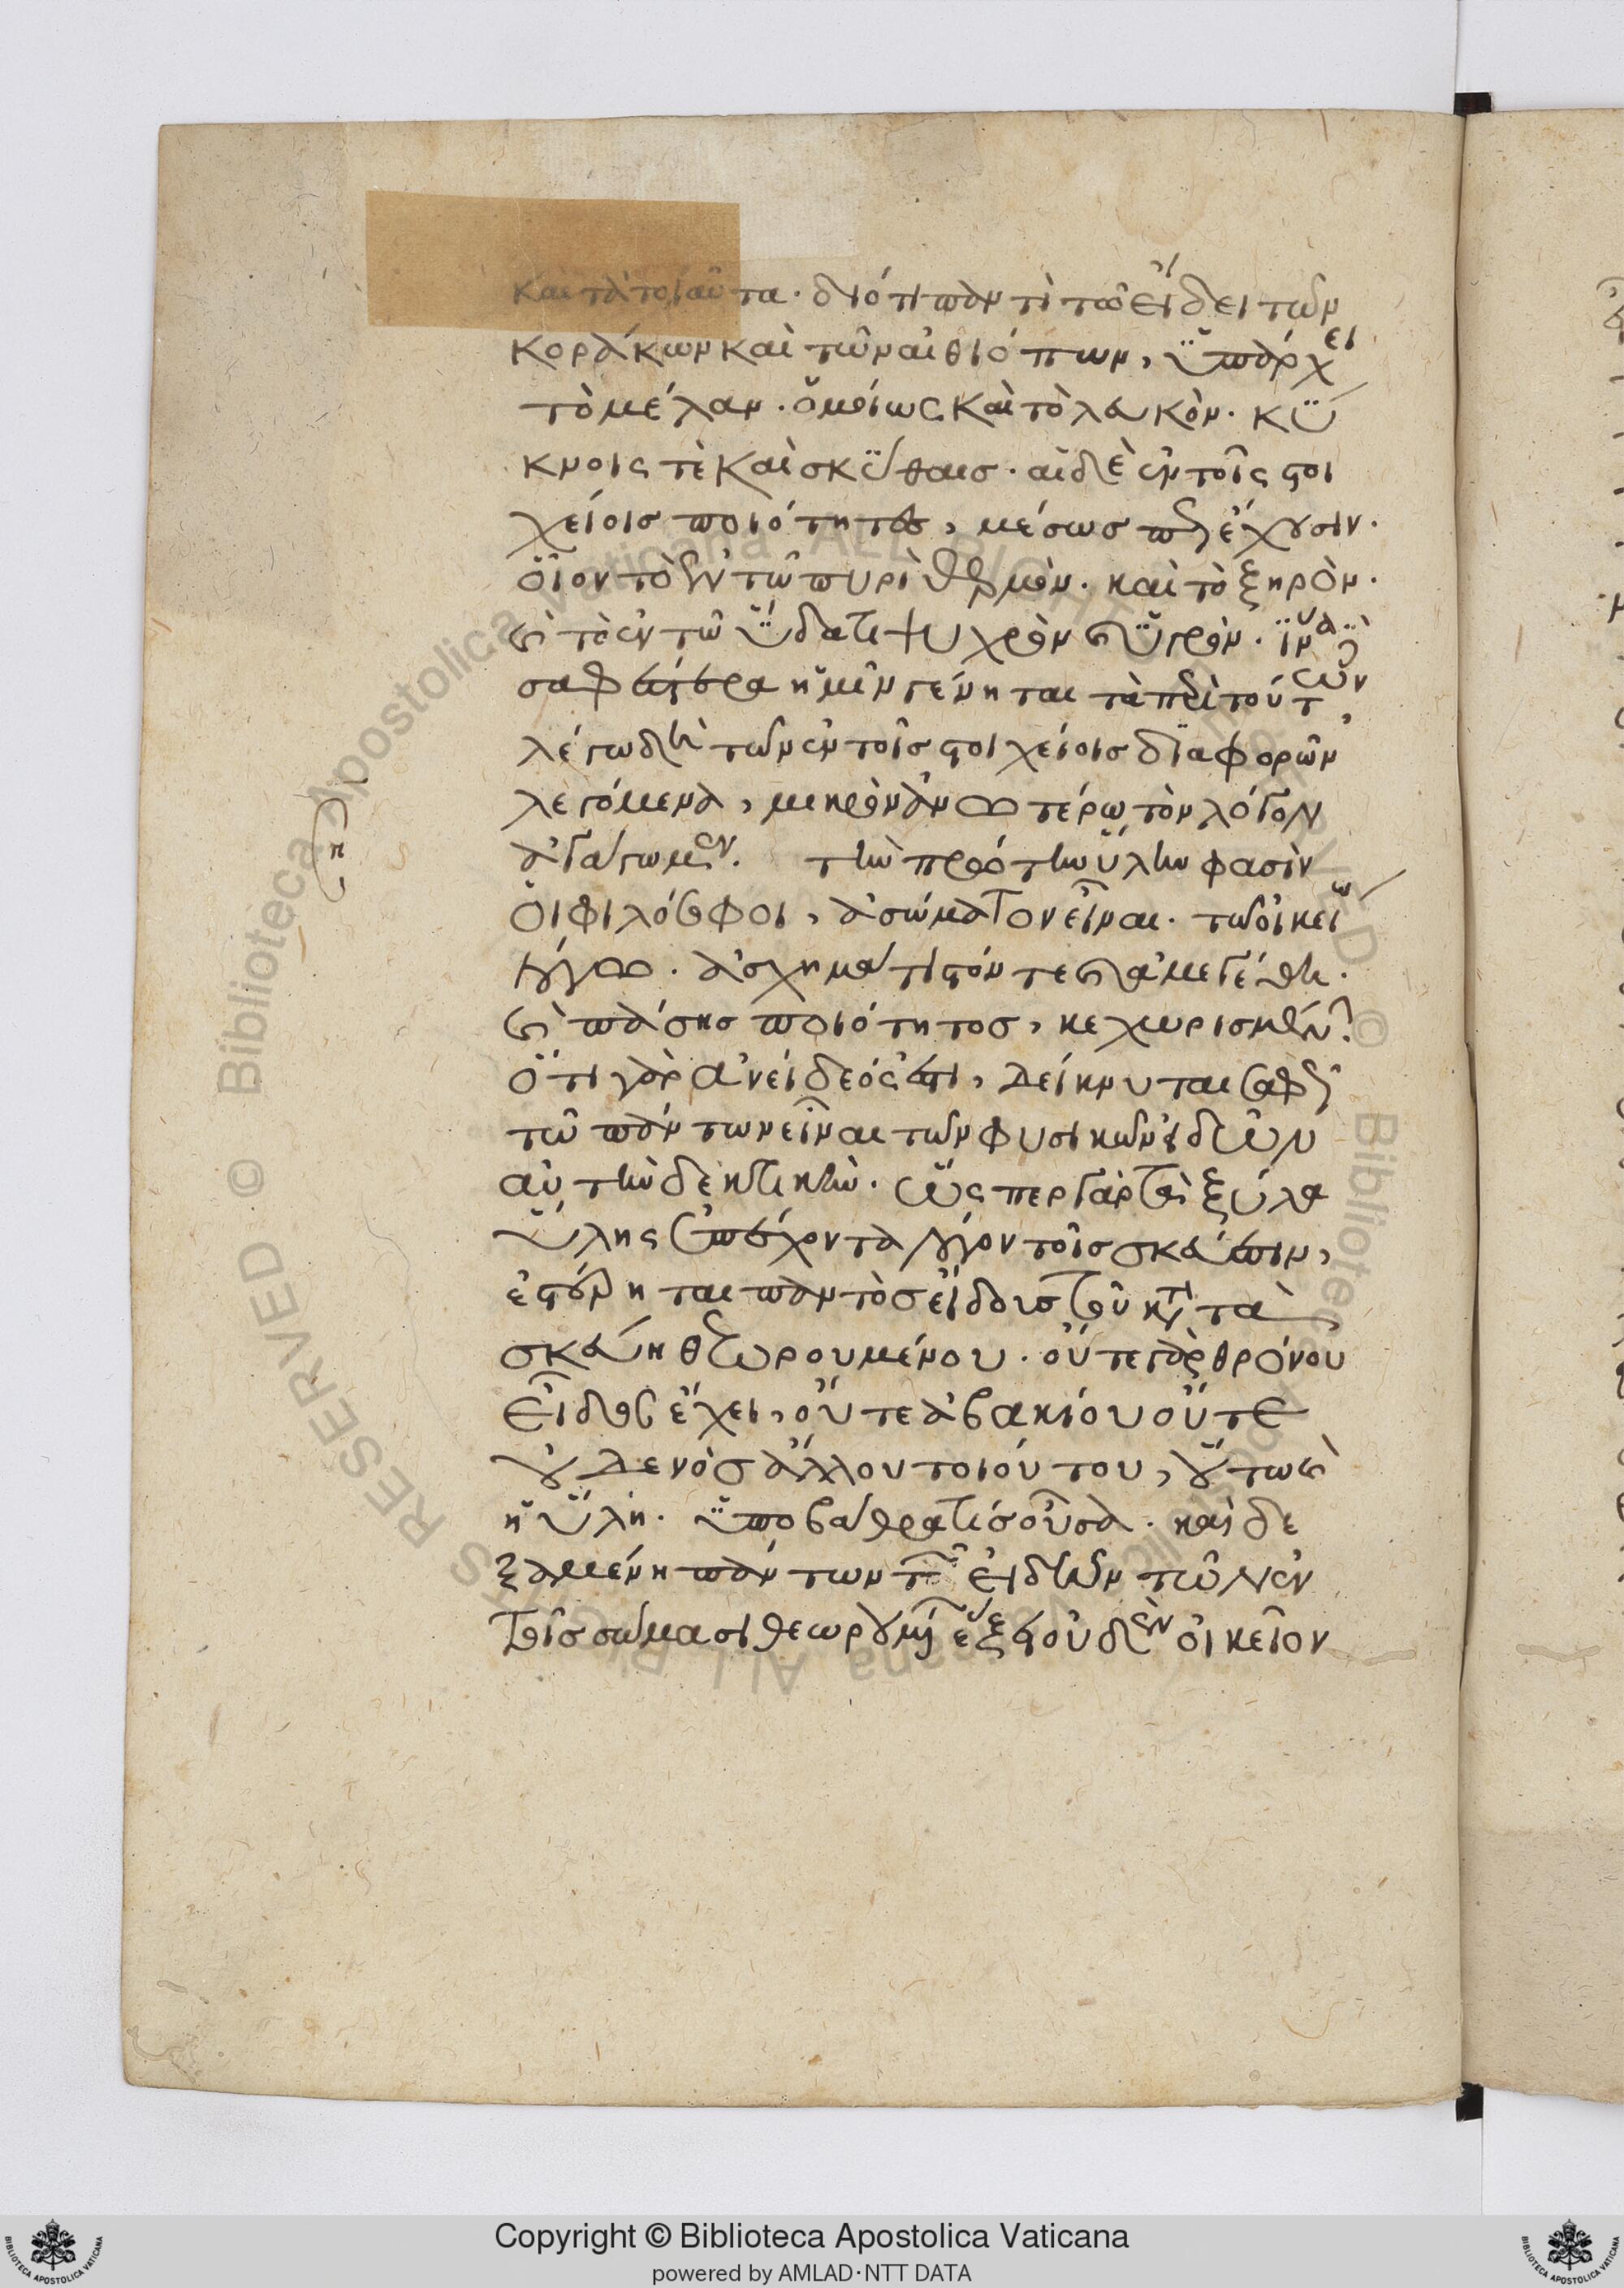 καὶ τὰ τοιαῦτα· διότι παντὶ τῶ εἴδει τῶν
κοράκων καὶ τῶν αἰθιόπων, ὑπάρχει
τὸ μέλαν· ὁμοίως καὶ τὸ λευκὸν· κύ
κνοις τὲ καὶ σκύθαις· αἱ δὲ ἐν τοῖς στοι
χείοις ποιότητες, μέσως πως ἔχουσιν·
οἷον τὸ ἐν τῶ πυρὶ θερμὸν· καὶ τὸ ξηρὸν·
καὶ τὸ ἐν τῶ ὕδατι ψυχρὸν καὶ ὑγρὸν· ἵνα δὲ
σαφέστερα ἡμῖν γένηται τὰ περὶ τούτων
λέγω δὴ τῶν ἐν τοῖς στοιχείοις διαφορῶν
λεγόμενα, μικρὸν ἀνωτέρω τὸν λόγον
ἀγάγωμεν· τὴν πρώτην ὕλην φασὶν
οἱ φιλόσοφοι, ἀσώματον εἶναι· τῶ οἰκείω
λόγω· ἀσχημάτιστόν τε καὶ ἀμεγέθη·
καὶ πάσης ποιότητος, κεχωρισμένην·
ὅτι γὰρ ἀνείδεός ἐστι, δείκνυται σαφῶς
τῶ πάντων εἶναι τῶν φυσικῶν εἰδῶν
αὐτὴν δεκτικὴν· ὥσπερ γὰρ τὰ ξύλα
ὕλης ἐπέχοντα λόγον τοῖς σκεύεσιν,
ἐστέρηται παντὸς εἴδους τοῦ κατὰ τὰ
σκεύη θεωρουμένου· οὔτε γὰρ θρόνου
εἶδος ἔχει, οὔτε ἀβακίου οὔτε
οὐδενὸς ἄλλου τοιούτου, οὕτως
ἡ ὕλη· ὑποβάθρα τίς οὖσα· καὶ δε
ξαμένη πάντων τῶν εἰδῶν τῶν ἐν
τοῖς σώμασι θεωρουμένων ἐξ ἑαυτοῦ οὐδὲν οἰκεῖον